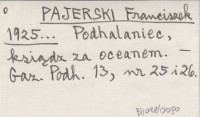 PAJERSKI Franciszek
1925... Podhalaniec,
ksiądz za oceanem. –
Gaz. Podh. 13, nr 25 i 26.